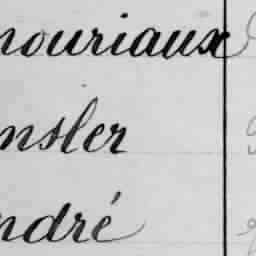 nouriaux
nsler
ndré